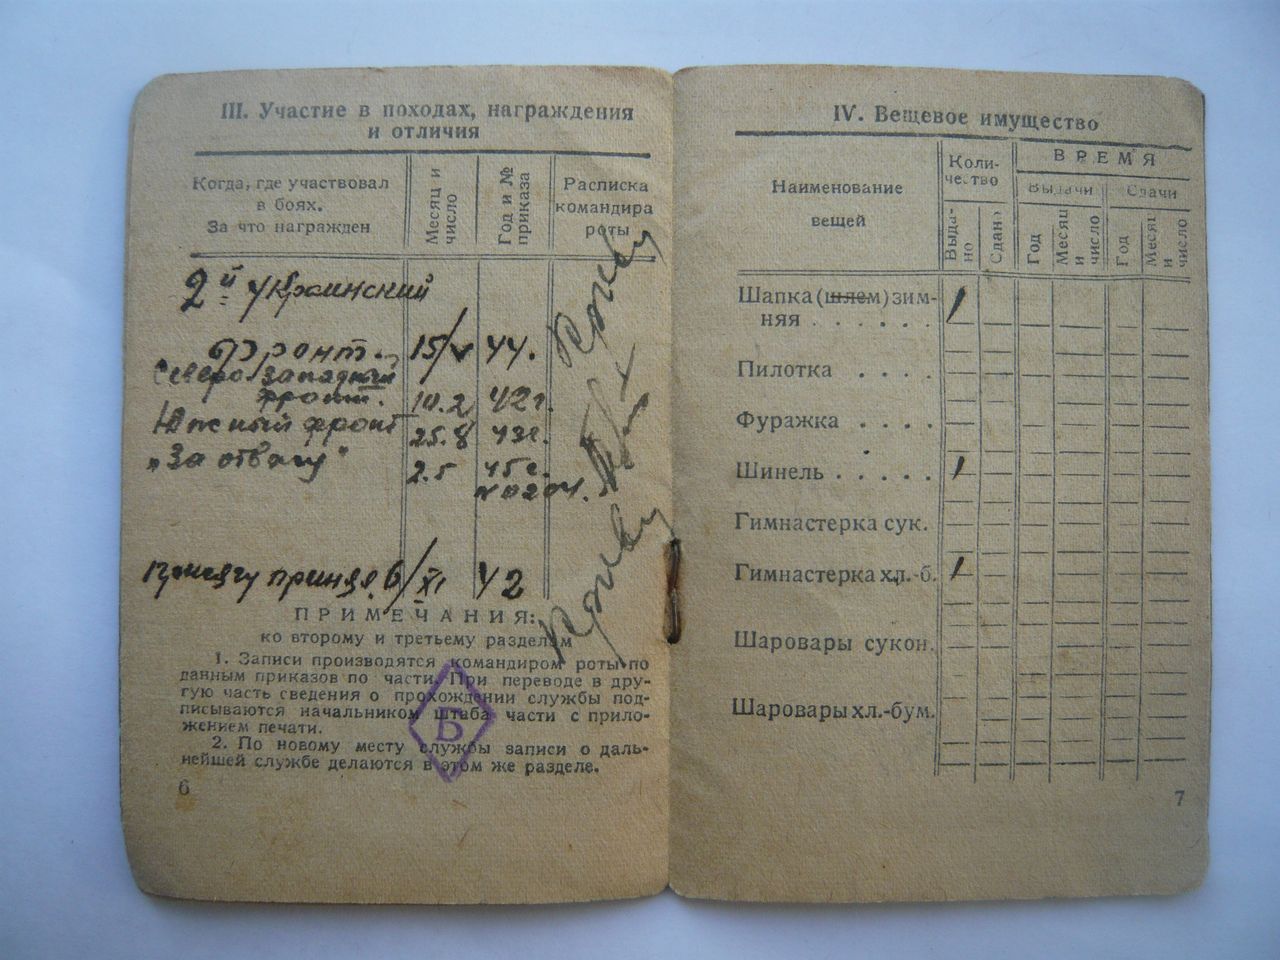 III. Участие в походах, награждения
и отличия
Когда, где участвовал
в боях.
За что награжден
Месяц и
число
Год и №
приказа
Расписка
командира
роты
2й Украинский
фронт. 15/V 44.
Северо-Западный
фронт. 10.2 42г.
Южный фронт 25.8 43г.
„За отвагу" 2.5 45г.
№0204.
Присягу принял 6/XI 42
ПРИМЕЧАНИЯ:
ко второму и третьему разделам
1. Записи производятся командиром роты по
данным приказов по части. При переводе в дру-
гую часть сведения о прохождении службы под-
писываются начальником штаба части с прило-
жением печати.
2. По новому месту службы записи о даль-
нейшей службе делаются в этом же разделе.
Б
6
IV. Вещевое имущество
Наименование
вещей
Коли-
чество
ВРЕМЯ
Выдачи
Сдачи
Выда-
но
Сдано
Год
Месяц
и
число
Год
Месяц
и
число
Шапка (шлем) зим-
няя . . . . . . 1
Пилотка . . . .
Фуражка . . . .
Шинель . . . . . 1
Гимнастерка сук.
Гимнастерка хл.-б. 1
Шаровары сукон.
Шаровары хл.-бум.
7